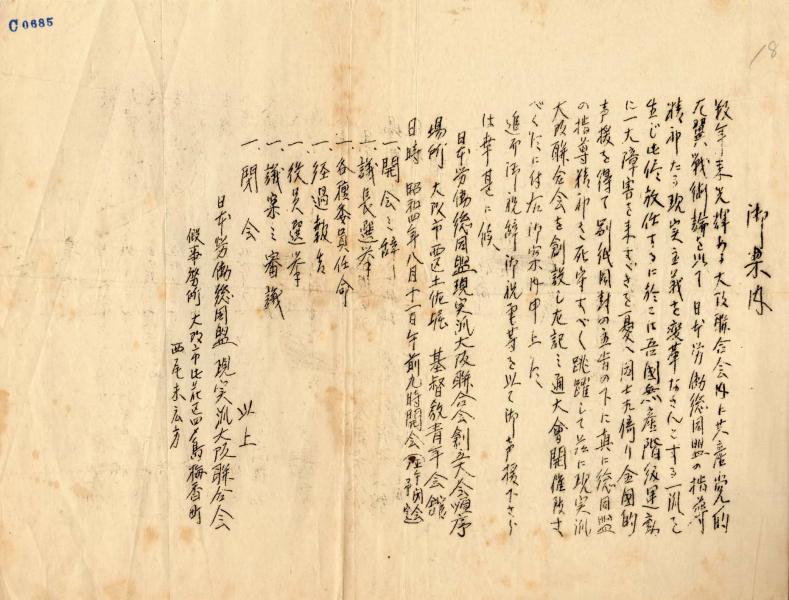 C0685
18
御案内
数年来光輝ある大阪聯合会内に共産党的
左翼戦術論を以て日本労働総同盟の指導
精神たる現実主義を変革なさんとする一派を
生じ此侭放任するに於ては吾国無産階級運動
に一大障害を来すべきを憂へ同士相倚り全国的
声援を得て別紙同封の宣言の下に真に総同盟
の指導精神を死守すべく跳躍して茲に現実派
大阪聯合会を創設し左記之通大會開催致す
べく候に付右御案内申上候、
追而御祝辞御祝電等を以て御声援下さら
は幸甚に候
日本労働総同盟現実派大阪聯合会創立大会順序
場所 大阪市西区土佐堀 基督教青年会館
日時 昭和四年八月十一日午前九時開会(正午閉会予定)
一、開会之辞
一、議長選挙
一、各種委員任命
一、経過報告
一、役員選挙
一、議案之審議
一、閉会
以上
日本労働総同盟現実派大阪聯合会
假事務所 大阪市此花区四貫島梅香町
西尾末広方